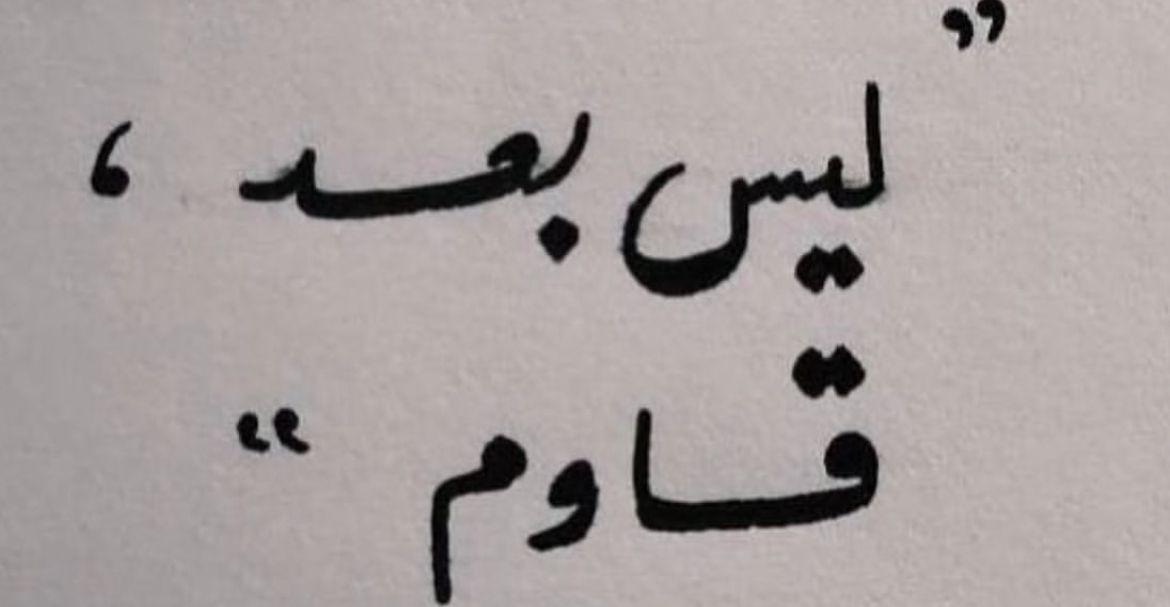 ”ليس بعد ،
قاوم “